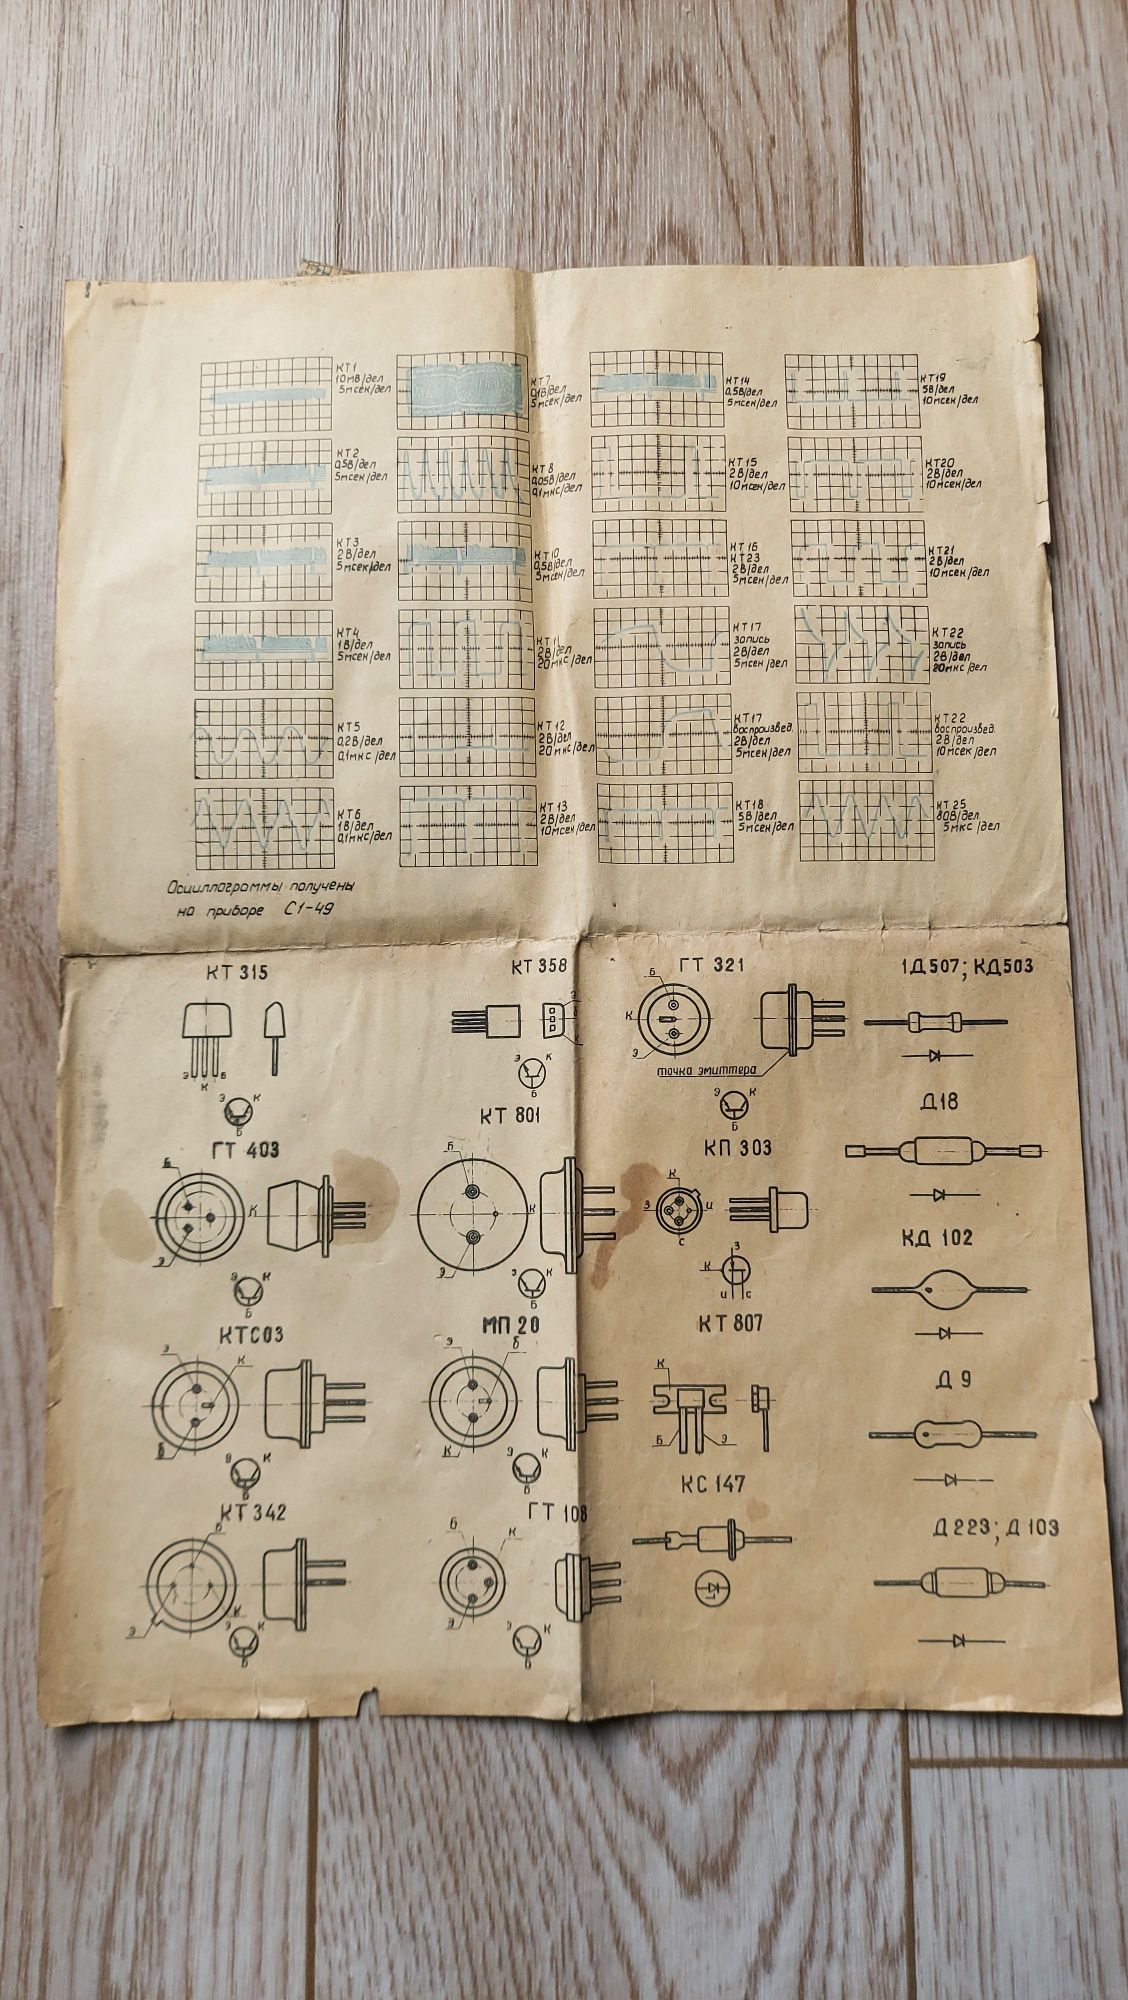 КТ1
10мВ/дел
5мсек/дел
КТ2
0,5В/дел
5мсек/дел
КТ3
2В/дел
5мсек/дел
КТ4
1В/дел
5мсек/дел
КТ5
0,2В/дел
0,1мкс/дел
КТ6
1В/дел
0,1мкс/дел
КТ7
0,1В/дел
5мсек/дел
КТ8
0,05В/дел
0,1мкс/дел
КТ10
0,5В/дел
5мсек/дел
КТ11
2В/дел
20мкс/дел
КТ12
2В/дел
20мкс/дел
КТ13
2В/дел
10мсек/дел
КТ14
0,5В/дел
5мсек/дел
КТ15
2В/дел
10мсек/дел
КТ16
КТ23
2В/дел
5мсек/дел
КТ17
запись
2В/дел
5мсек/дел
КТ17
воспроизвед.
2В/дел
5мсек/дел
КТ18
5В/дел
5мсек/дел
КТ19
5В/дел
10мсек/дел
КТ20
2В/дел
10мсек/дел
КТ21
2В/дел
10мсек/дел
КТ22
запись
2В/дел
20мкс/дел
КТ22
воспроизвед.
2В/дел
10мсек/дел
КТ25
80В/дел
5мкс/дел
Осциллограммы получены
на приборе С1-49
КТ 315
Э К Б
Э К
Б
КТ 358
Э
Б
К
Э К
Б
ГТ 321
Б
К
Э
точка эмиттера
Э К
Б
1Д507; КД503
ГТ 403
Б
К
Э
Э К
Б
КТ 801
Б
К
Э
Э К
Б
КП 303
К
З И
С
З
К
И С
Д18
КД 102
КТС03
Э
К
Б
К
Б
МП 20
Э
б
К
Э К
Б
КТ 807
К
Б Э
Д 9
КТ 342
Б
К
Э
Э К
Б
ГТ 108
б
К
Э
Э К
Б
КС 147
Д223; Д103